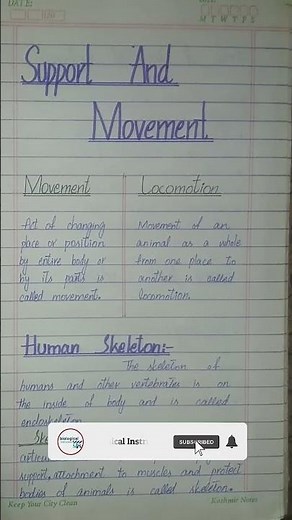 DATE:
M T W T F S
Support And
Movement
Movement
Act of changing
place or position
by entire body or
by its parts is
called movement.
Locomotion
Movement of an
animal as a whole
from one place to
another is called
locomotion.
Human Skeleton:-
The skeleton of
humans and other vertebrates is on
the inside of body and is called
endoskeleton
ical Instr
SUBSCRIBED
support, attachment to muscles and protect
bodies of animals is called skeleton.
Keep Your City Clean
Kashmir Notes